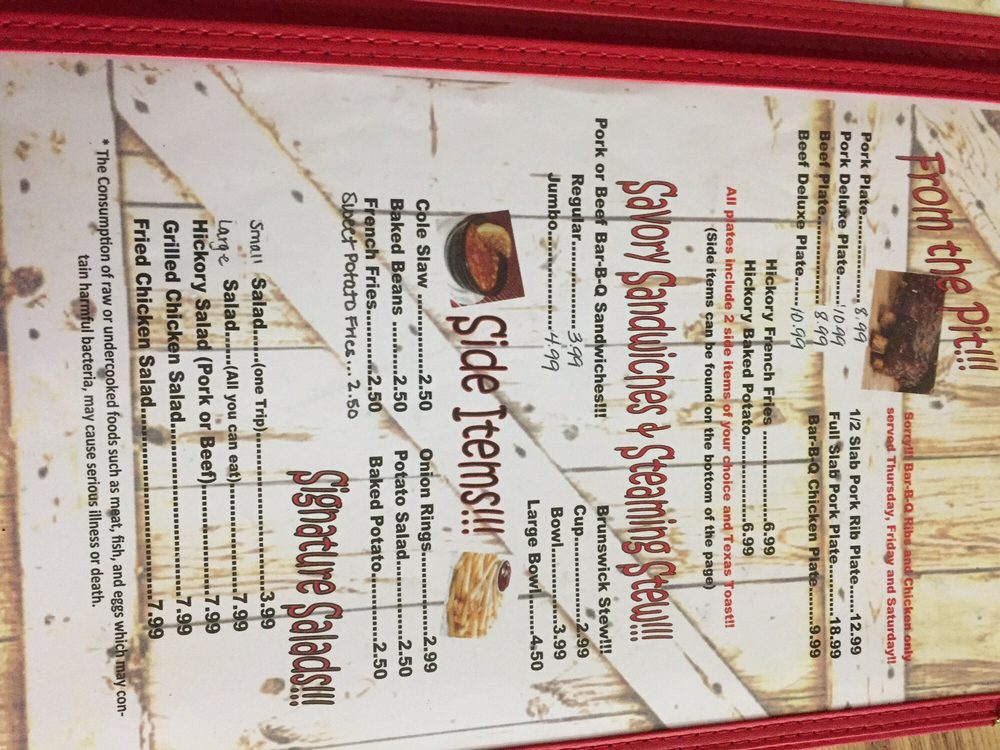 From the Pit!!!
Sorry!!! Bar-B-Q Ribs and Chicken only
served Thursday, Friday and Saturday!!
Pork Plate.............. 8.99
Pork Deluxe Plate...... 10.99
Beef Plate.............. 8.99
Beef Deluxe Plate...... 10.99
1/2 Slab Pork Rib Plate......12.99
Full Slab Pork Plate.........18.99
Bar-B-Q Chicken Plate.......9.99
Hickory French Fries ...................6.99
Hickory Baked Potato...................6.99
All plates include 2 side items of your choice and Texas Toast!!
(Side items can be found on the bottom of the page)
Savory Sandwiches & Steaming Stew!!!
Pork or Beef Bar-B-Q Sandwiches!!!
Regular.................3.99
Jumbo..................4.99
Brunswick Stew!!!
Cup...............2.99
Bowl...............3.99
Large Bowl........4.50
Side Items!!!
Cole Slaw ...............2.50
Baked Beans ...........2.50
French Fries..............2.50
Sweet Potato Fries... 2.50
Onion Rings.................2.99
Potato Salad................2.50
Baked Potato...............2.50
Signature Salads!!!
Small Salad.....(one Trip).....................3.99
Large Salad.....(All you can eat)...............7.99
Hickory Salad (Pork or Beef)...............7.99
Grilled Chicken Salad........................7.99
Fried Chicken Salad..........................7.99
* The Consumption of raw or undercooked foods such as meat, fish, and eggs which may con-
tain harmful bacteria, may cause serious illness or death.